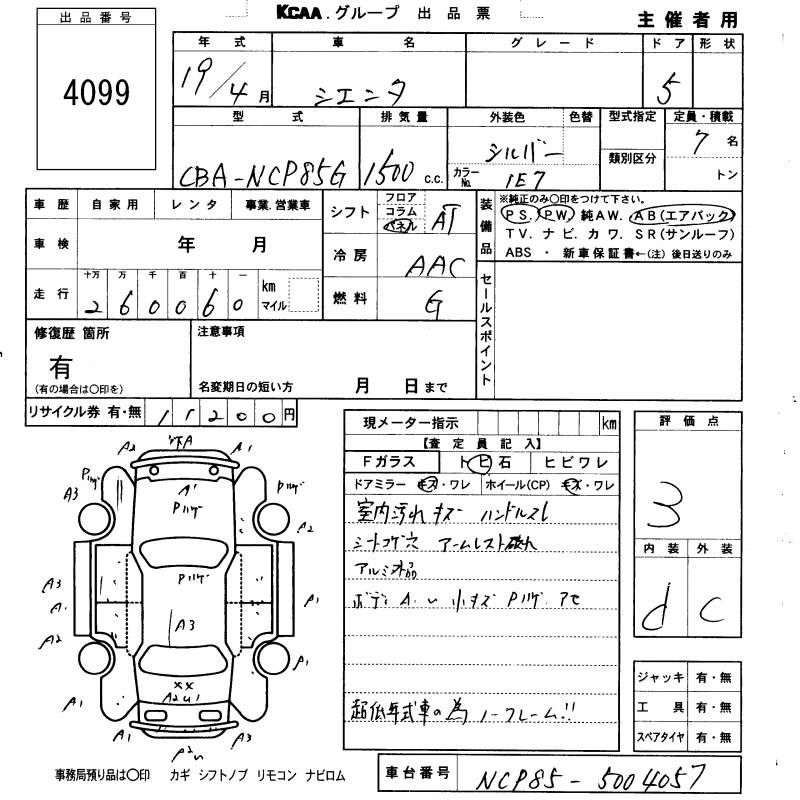 KCAA.グループ 出品票
主催者用
出品番号
4099
年式 車名 グレード ドア 形状
19/4月 シエンタ 5
型式 排気量 外装色 色替 型式指定 定員・積載
CBA-NCP85G 1500 c.c. シルバー 7名
カラーNo. 1E7 類別区分 トン
車歴 自家用 レンタ 事業.営業車
車検 年 月
走行 十万 万 千 百 十 一 km マイル
2 6 0 0 6 0
シフト フロア コラム パネル AT
冷房 AAC
燃料 G
装備品
※純正のみ〇印をつけて下さい。
PS. PW. 純AW. AB(エアバック)
TV. ナビ. カワ. SR(サンルーフ)
ABS ・ 新車保証書←(注) 後日送りのみ
セールスポイント
修復歴 箇所
有
(有の場合は〇印を)
注意事項
名変期日の短い方 月 日まで
リサイクル券 有・無 11200円
現メーター指示 km
【査定員記入】
Fガラス トビ石 ヒビワレ
ドアミラー キズ・ワレ ホイール(CP) キズ・ワレ
室内汚れ キズー ハンドルスレ
シートコゲ穴 アームレスト破れ
アルミ外品
ボディ A.U 小キズ Pハゲ アセ
超低年式車の為 ノークレーム!!
評価点
3
内装 外装
d C
ジャッキ 有・無
工具 有・無
スペアタイヤ 有・無
A2 下A A1
Pハゲ A1 Pハゲ
A3 Pハゲ A2
Pハゲ
A3
A1 A3 A1
A2 A1
××
A1 A2U1 A1
A1 A3
P2U
事務局預り品は〇印 カギ シフトノブ リモコン ナビロム
車台番号 NCP85-5004057